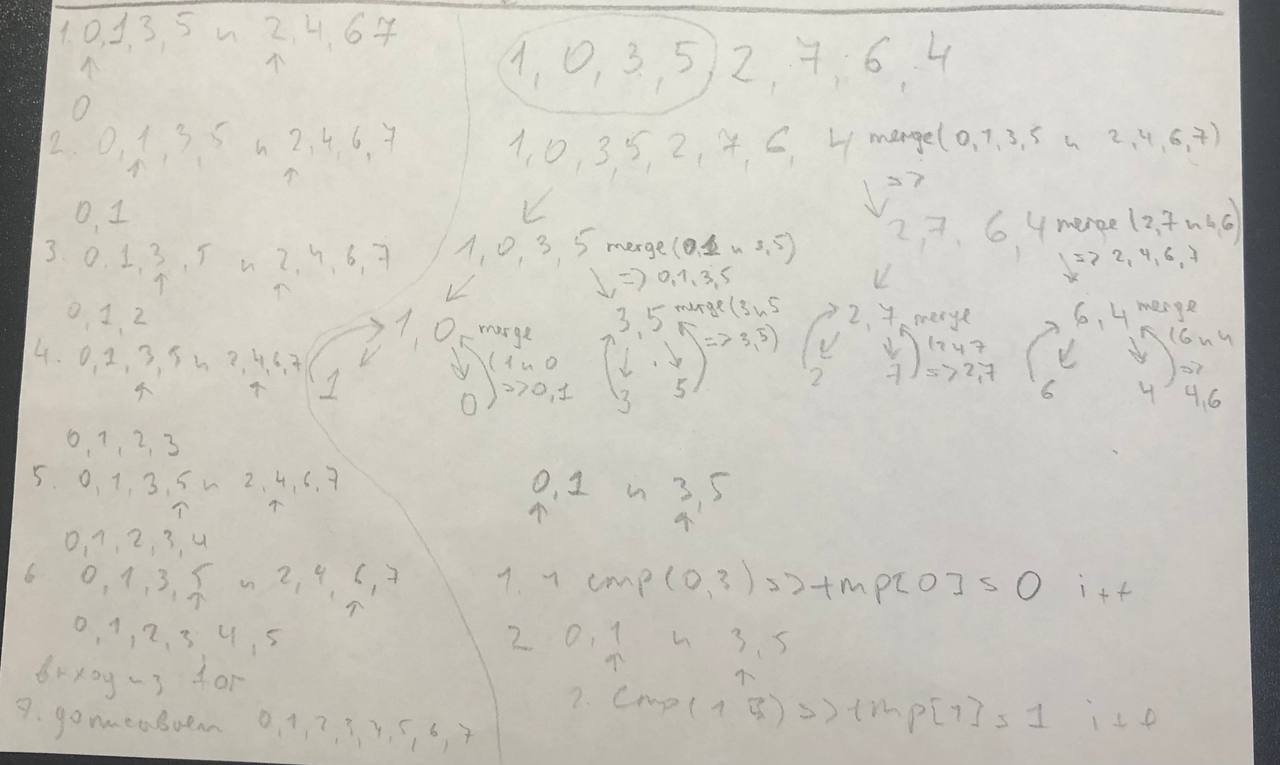 1. 0,1,3,5 и 2,4,6 7
0
2. 0,1,3,5 и 2,4,6,7
0,1
3. 0.1,3,5 и 2,4,6,7
0,1,2
4. 0,1,3,5 и 2,4,6,7
0,1,2,3
5. 0,1,3,5 и 2,4,6,7
0,1,2,3,4
6 0,1,3,5 и 2,4,6,7
0,1,2,3,4,5
выход из for
7. дописоваем 0,1,2,3,4,5,6,7
1, 0, 3, 5, 2, 7, 6, 4
1,0,3,5,2,7,6,4 merge(0,1,3,5 и 2,4,6,7)
=>
1,0,3,5 merge(0,1 и 3,5)
=> 0,1,3,5
2,7,6,4 merge(2,7 и 4,6)
=> 2,4,6,7
1,0 merge
(1 и 0
=> 0,1
1
0
3,5 merge(3 и 5
=> 3,5)
3
5
2,7 merge
(2 и 7
=> 2,7
2
7
6,4 merge
(6 и 4
=>
4,6
6
4
0,1 и 3,5
1. 1 cmp(0,3) => tmp[0] = 0 i++
2 0,1 и 3,5
2. cmp(1 3) => tmp[1] = 1 i++